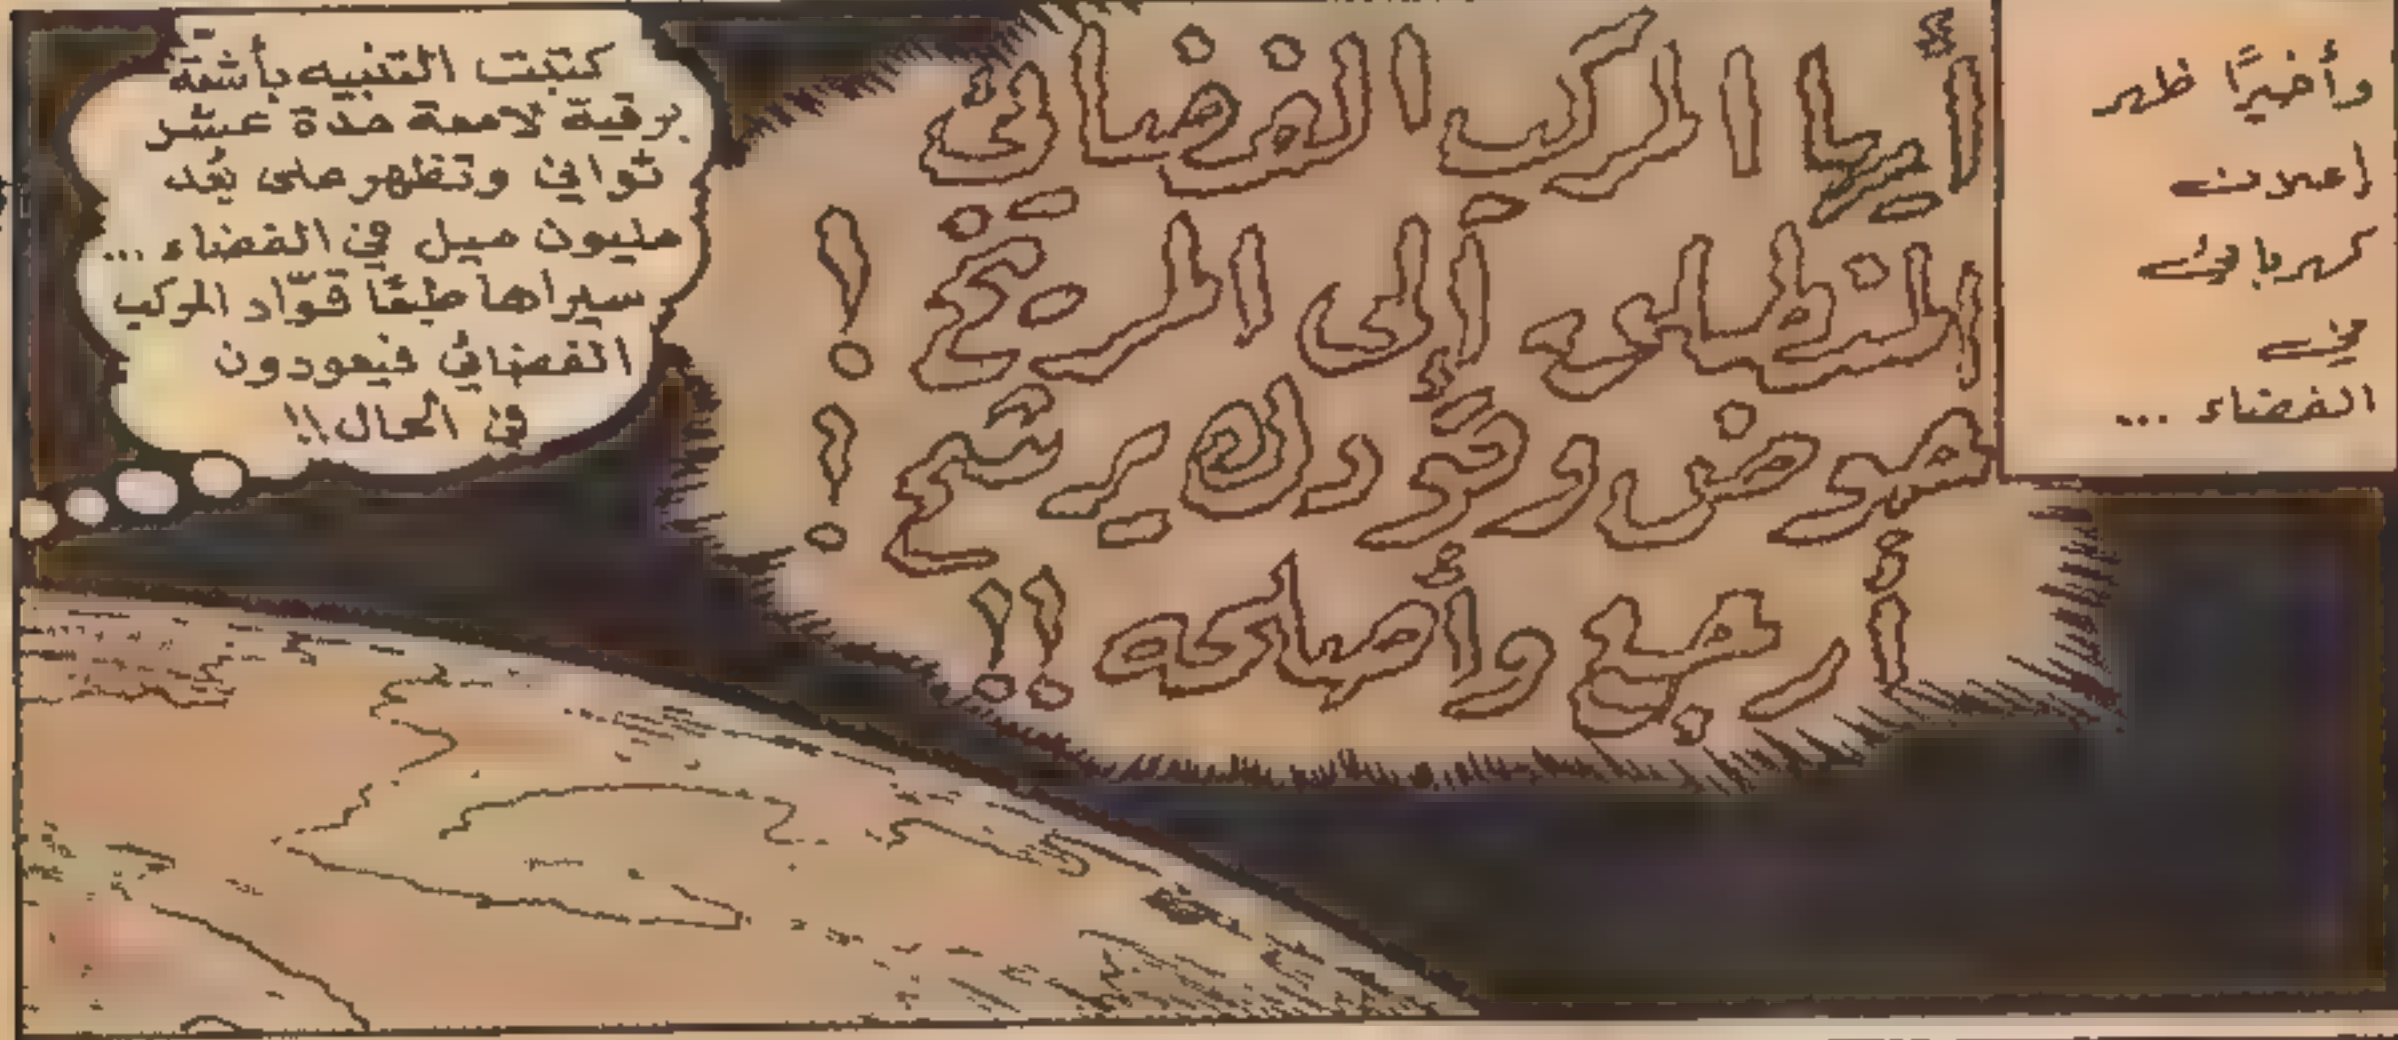 وأخيرًا ظهر
إعلان
كهربائي
في
الفضاء ...
أيها المركب الفضائي
المنطلق إلى المريخ !
حوض وقودك يرشح !
إرجع وأصلحه !!
كتبت التنبيه بأشعة
برقية لامعة مدة عشر
ثواني وتظهر على بُعد
مليون ميل في الفضاء ...
سيراها طبعًا قوّاد المركب
الفضائي فيعودون
في الحال !!